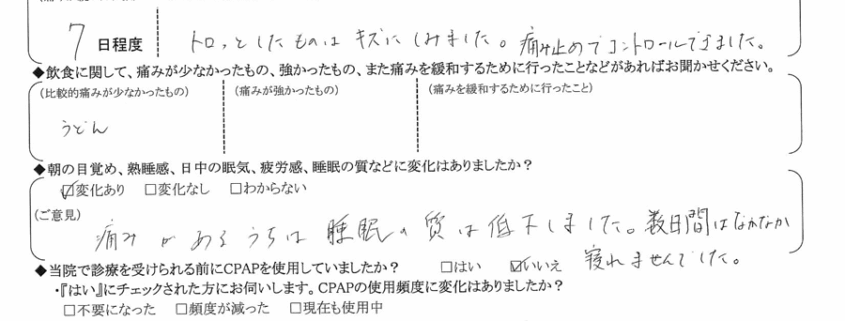 7 日程度 トロッとしたものはキズにしみました。痛み止めでコントロールできました。
◆飲食に関して、痛みが少なかったもの、強かったもの、また痛みを緩和するために行ったことなどがあればお聞かせください。
(比較的痛みが少なかったもの) (痛みが強かったもの) (痛みを緩和するために行ったこと)
うどん
◆朝の目覚め、熟睡感、日中の眠気、疲労感、睡眠の質などに変化はありましたか？
☑変化あり □変化なし □わからない
(ご意見)
痛みがあるうちは睡眠の質は低下しました。数日間はなかなか
寝れませんでした。
◆当院で診療を受けられる前にCPAPを使用していましたか？ □はい ☑いいえ
・『はい』にチェックされた方にお伺いします。CPAPの使用頻度に変化はありましたか？
□不要になった □頻度が減った □現在も使用中